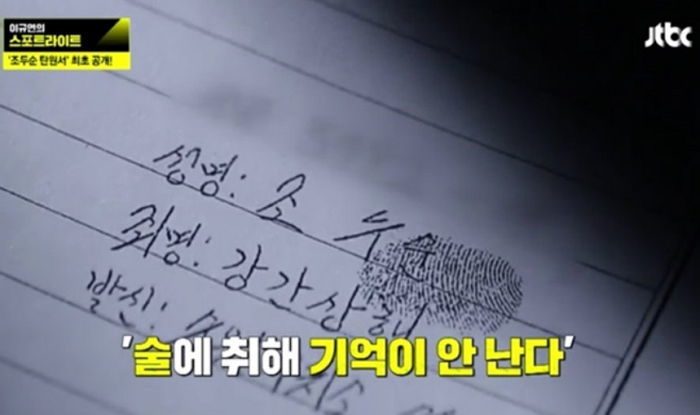 이규연의
스포트라이트
'조두순 탄원서' 최초 공개!
jtbc
성명: 조 두순
죄명: 강간상해
발신:
'술에 취해 기억이 안 난다'